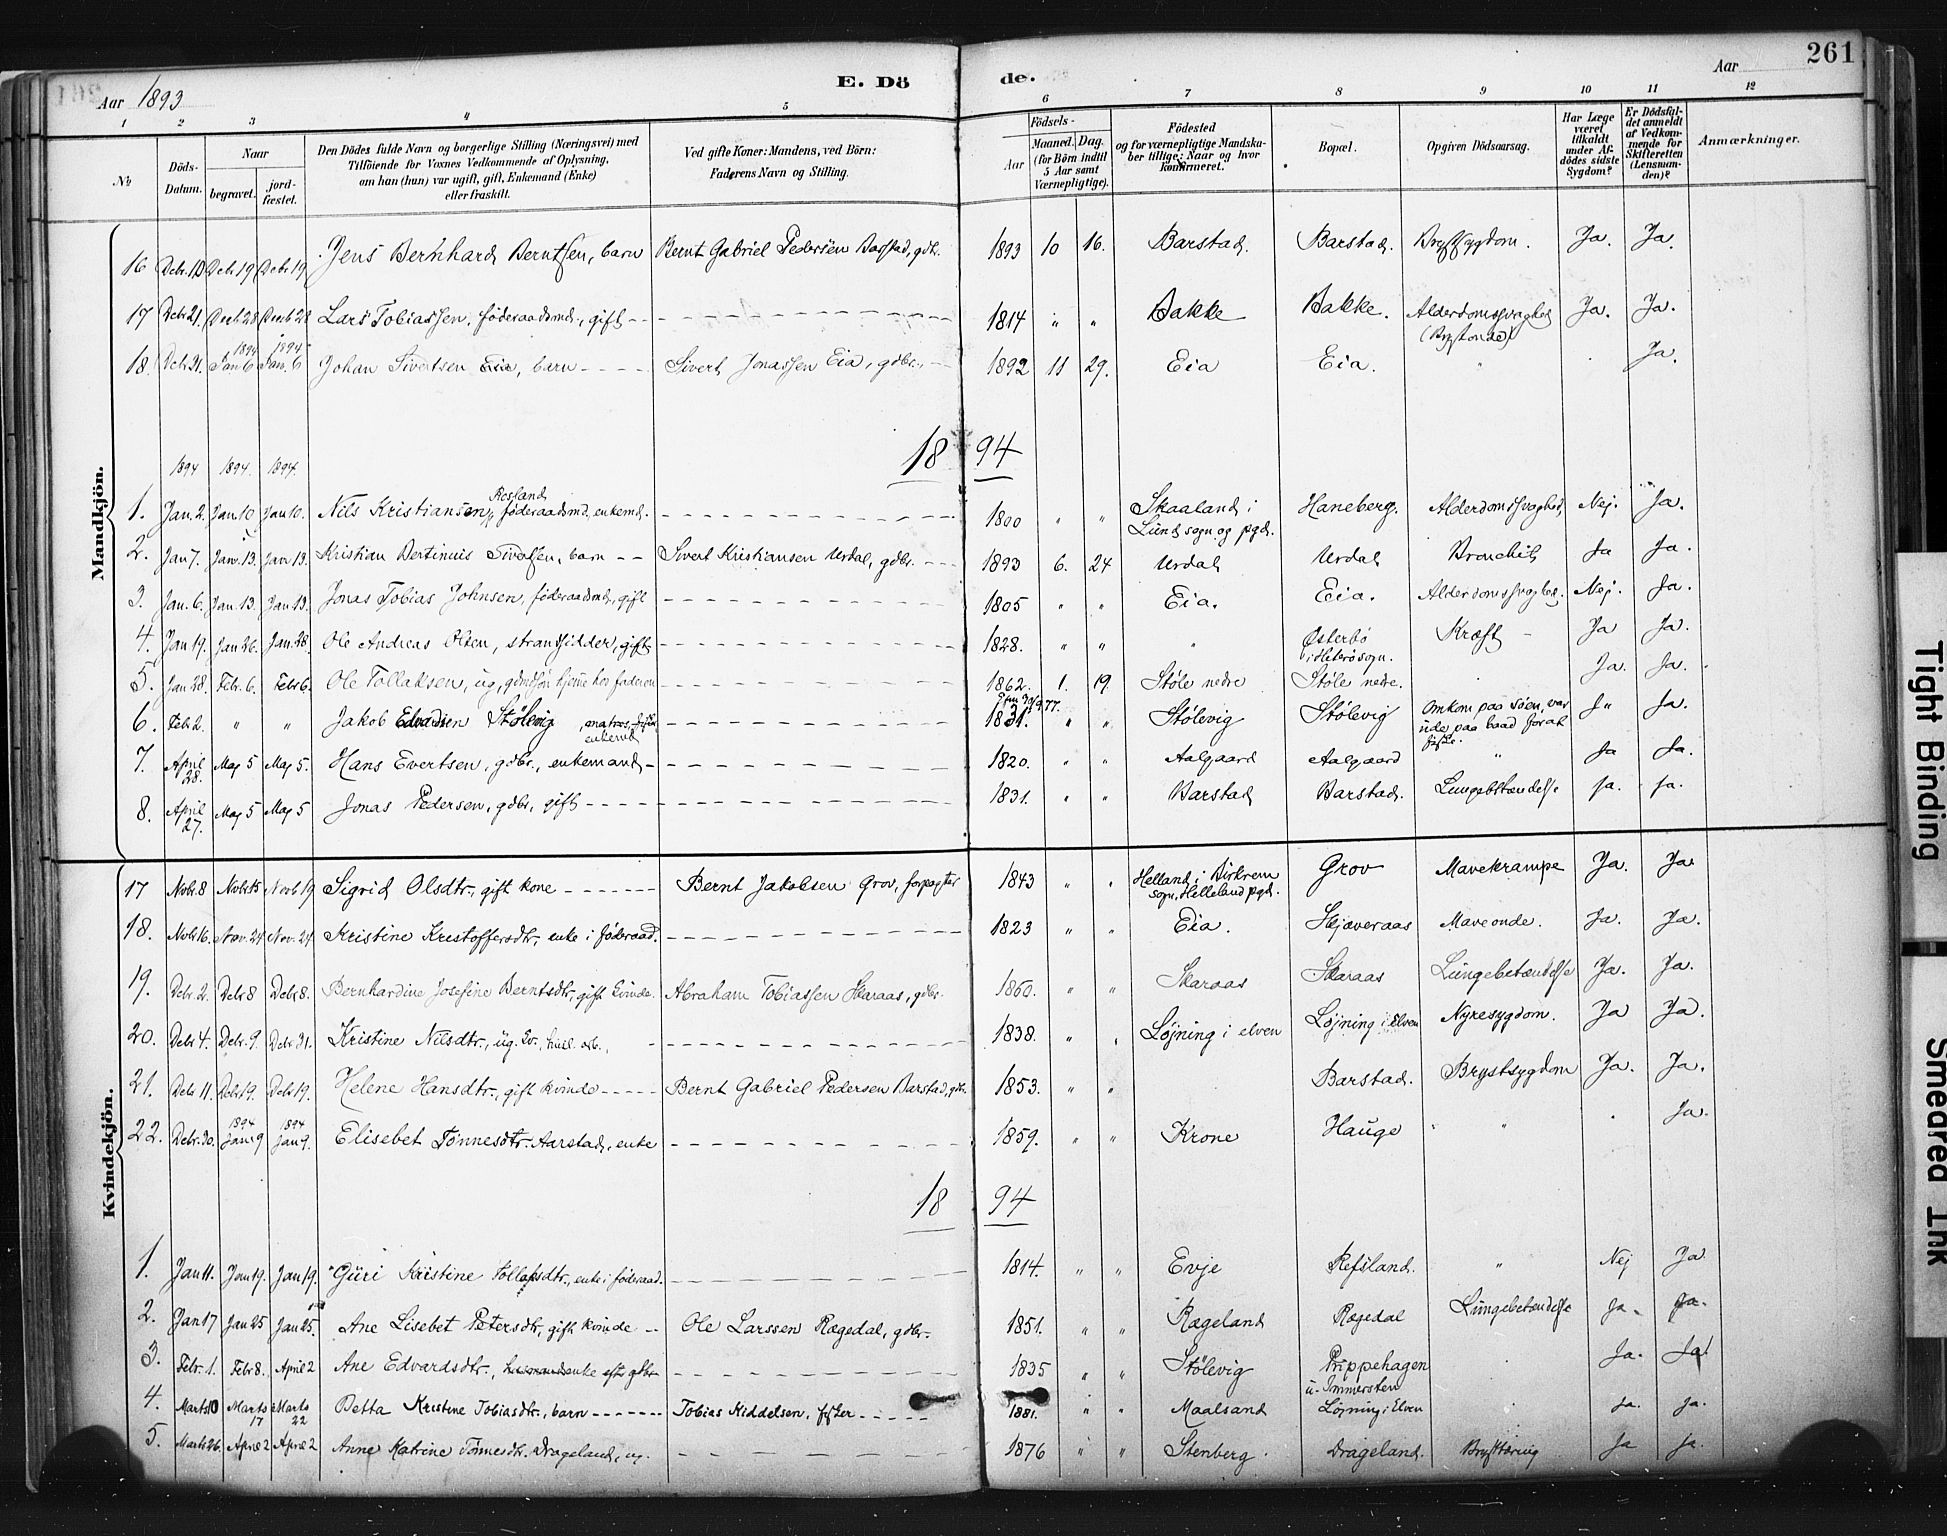 261
Aar 1893
E. Dö de.
Aar
1 2 3 4 5 6 7 8 9 10 11 12
No
Döds-Datum.
Naar
begravet.
jord-fæstet.
Den Dödes fulde Navn og borgerlige Stilling (Næringsvei) med
Tilföiende for Voxnes Vedkommende af Oplysning,
om han (hun) var ugift, gift, Enkemand (Enke)
eller fraskilt.
Ved gifte Koner: Mandens, ved Börn:
Faderens Navn og Stilling.
Födsels-
Aar
Maaned. Dag.
(for Börn indtil
5 Aar samt
Værnepligtige).
Födested
og for værnepligtige Mandska-
ber tillige: Naar og hvor
konfirmeret.
Bopæl.
Opgiven Dödsaarsag.
Har Læge
været
tilkaldt
under Af-
dödes sidste
Sygdom?
Er Dödsfal-
det anmeldt
af Vedkom-
mende for
Skifteretten
(Lensman-
den)?
Anmærkninger.
Mandkjön.
16 Decbr. Decbr 19 Decbr 19 Jens Bernhard Berntsen, barn Bernt Gabriel Pedersen Barstad, gdbr. 1893 10 16. Barstad. Barstad. Brystsygdom. Ja. Ja.
17 Decbr 21. Decb 28 Decb 28 Lars Tobiassen, föderaadsmd., gift 1814 " " Bakke Bakke. Alderdomssvaghed Ja. Ja.
(Brystonde)
1894 1894
18. Decbr 31. Jan 6 Jan. 6 Johan Sivertsen Eia, barn Sivert Jonassen Eia, gdbr., 1892 11 29. Eia Eia. " Ja.
18 94
1894 1894. 1894.
Rosland
1. Jan. 2. Jan 10 Jan 10. Nils Kristiansen, föderaadsmd, enkemd. 1800 " " Skaaland i Haneberg. Alderdomssvaghed, Nej. Ja.
Lund sogn og pgd.
2. Jan 7. Jan. 13. Jan 13. Kristian Bertinius Sivertsen, barn Sivert Kristiansen Urdal, gdbr. 1893 6. 24 Urdal Urdal Bronchit Ja Ja.
3. Jan. 6. Jan. 13. Jan 13. Jonas Tobias Johnsen, föderaadsmd, gift 1805 " " Eia. Eia. Alderdomssvaghed. Nej. Ja.
4. Jan 19. Jan 26. Jan. 28. Ole Andreas Olsen, strandsidder, gift 1828. " " " Østerbö Kræft Ja Ja.
i Hiterö sogn.
5. Jan. 28. Febr. 6. Febr 6. Ole Tollaksen, ug, gdmdsön hjeme hos faderen 1862. 1. 19. Stöle nedre Stöle nedre. Ja. Ja.
6. Feb 2. " " Jakob Edvardsen Stölevig, matros, enkemd 1831. " " Stölevig Stölevig Omkom paa söen, var J" Ja.
ude paa baad for at
fiske.
7. April 28. Maj 5 Maj 5. Hans Evertsen, gdbr., enkemand 1820. " " Aalgaard Aalgaard " Ja Ja.
8. April 27. Maj 5 Maj 5 Jonas Pedersen, gdbr, gift 1831. " " Barstad Barstad. Lungebetændelse ja. ja.
Kvindekjön.
17 Novbr 8 Novbr 15 Novb 19 Sigrid Olsdtr., gift kone Bernt Jakobsen Grov, forpagter 1843 " " Helland i Birkrem Grov Mavekrampe Ja. Ja
sogn, Helleland pgd.
18. Novbr 16. Nov. 24 Nov. 24. Kristine Kristoffersdtr, enke i föderaad. 1823 " " Eia. Skjæveraas Maveonde. Ja. Ja.
19. Debr. 2. Debr 8 Debr 8. Bernhardine Josefine Berntsdtr, gift kvinde. Abraham Tobiassen Skaraas, gdbr. 1860. " " Skaraas Skaraas Lungebetændelse Ja. Ja.
20. Debr 4. Debr. 9. Debr 31. Kristine Nilsdtr., ug. kv., husl. arb., 1838. " " Löjning i elven Löjning i Elven Nyresygdom. Ja Ja.
21. Debr 11. Debr 19. Debr 19. Helene Hansdtr., gift kvinde Bernt Gabriel Pedersen Barstad, gdbr. 1853. " " Barstad. Brystsygdom Ja. Ja.
1894 1894
22. Debr. 30. Jan 9 Jan 9. Elisebet Tönnesdtr. Aarstad, enke 1859. " " Krone Hauge " Ja.
18 94
1. Jan 11. Jan 19. Jan 19. Guri Kristine Tollaksdtr., enke i föderaad. 1814. " " Evje Refsland. " Nej Ja.
2. Jan 17 Jan 25 Jan 25. Ane Lisebet Petersdtr, gift kvinde Ole Larssen Rægedal, gdbr. 1851. " " Rægeland Rægedal Lungebetændelse Ja. Ja.
3. Febr. 1. Febr 8. April 2 Ane Edvardsdtr., enke efter gdbr 1835 " " Stölevig Prippehagen Ja. Ja.
u. Immersten
4. Marts 10 Marts 17 Marts 22 Betta Kristine Tobiasdtr., barn Tobias Kiddelsen, fisker 1881. " " Maalsand Löjning i Elven Ja. Ja.
5. Marts 26. April 2 April 2 Anne Katrine Tönnesdtr. Drageland, ug. 1876 " " Stenberg. Drageland. Brysttæring Ja Ja.
Tight Binding
Smeared Ink